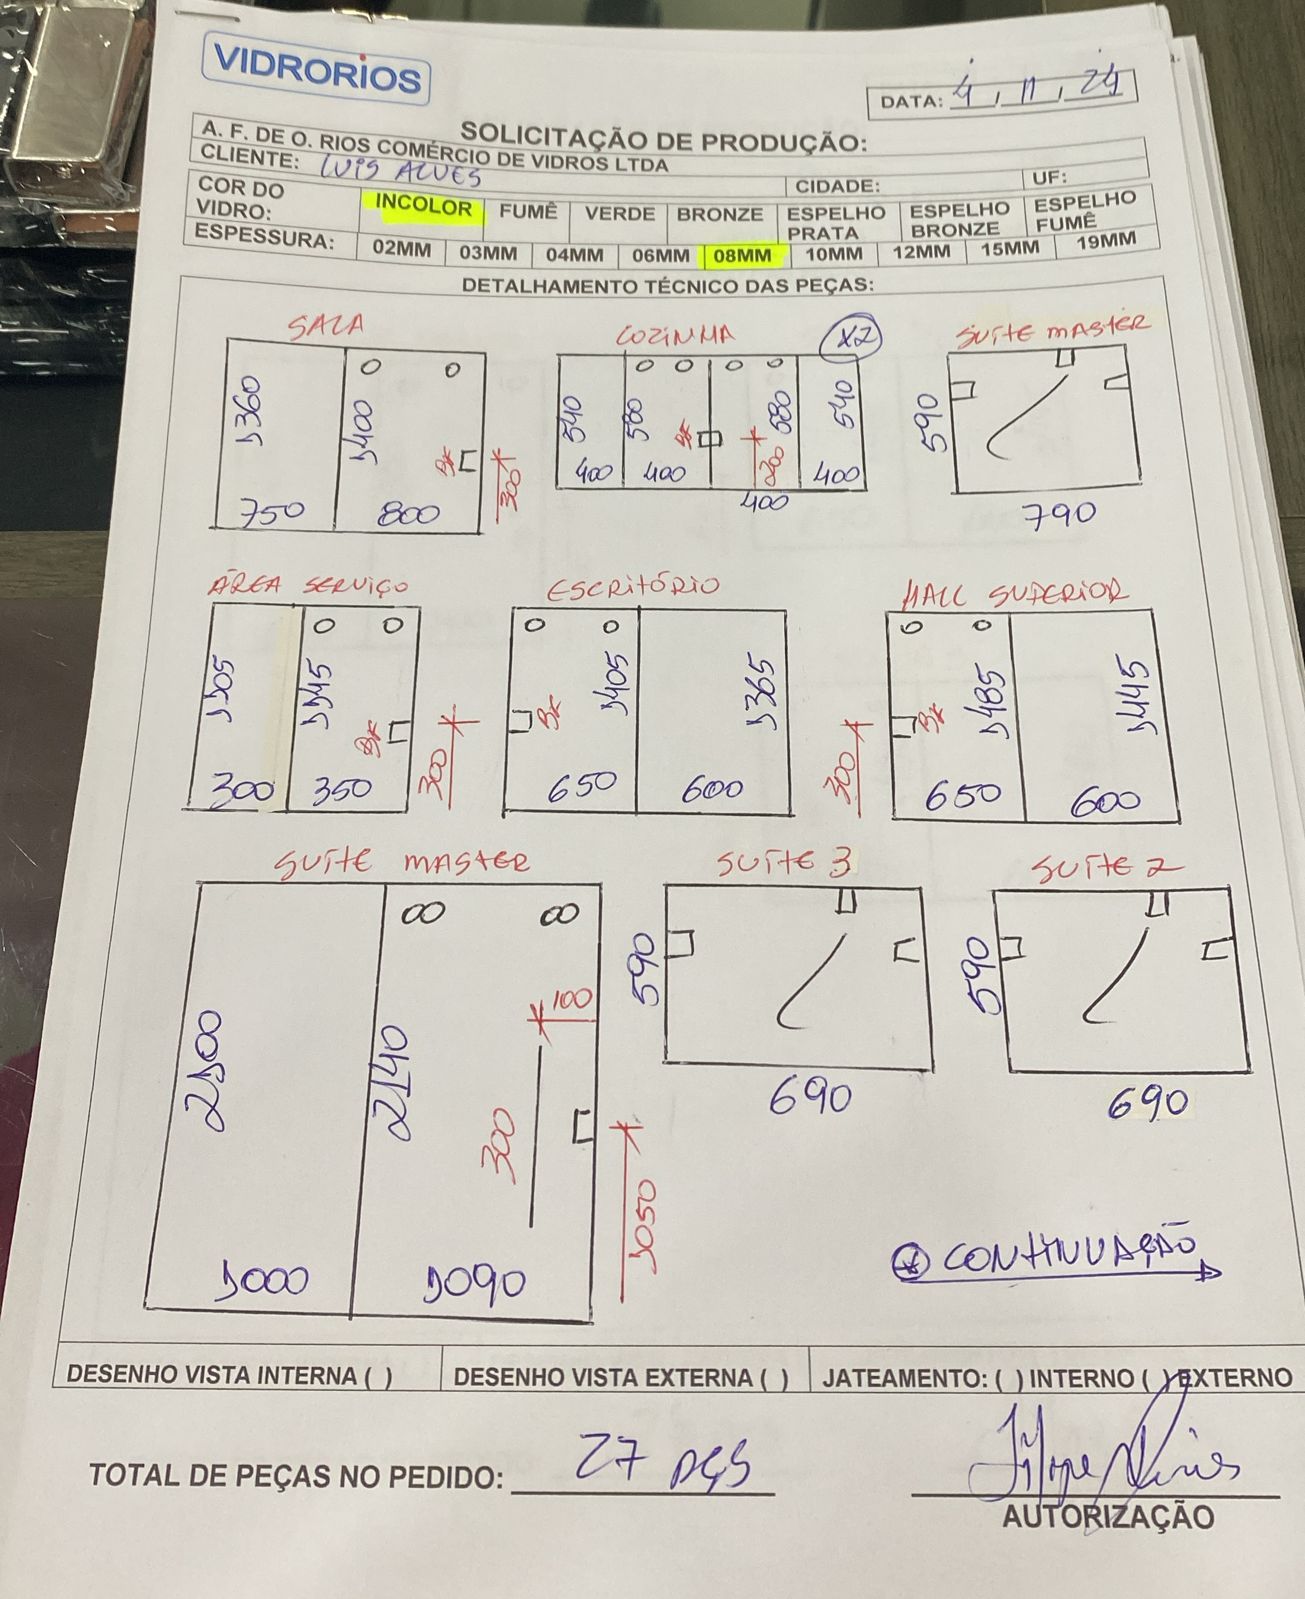 VIDRORIOS
DATA: 4, 11, 24
SOLICITAÇÃO DE PRODUÇÃO:
A. F. DE O. RIOS COMÉRCIO DE VIDROS LTDA
CLIENTE: LUIS ALVES
CIDADE: UF:
COR DO VIDRO: INCOLOR FUMÊ VERDE BRONZE ESPELHO PRATA ESPELHO BRONZE ESPELHO FUMÊ
ESPESSURA: 02MM 03MM 04MM 06MM 08MM 10MM 12MM 15MM 19MM
DETALHAMENTO TÉCNICO DAS PEÇAS:
SALA
1360
1400
BK
300
750 800
COZINHA X2
540 580 580 540
BK
200
400 400 400 400
SUÍTE MASTER
590
790
ÁREA SERVIÇO
1105
1145
BK
300
300 350
ESCRITÓRIO
BK
1405
1365
650 600
HALL SUPERIOR
300
BK
1485
1445
650 600
SUÍTE MASTER
2100
2140
100
300
1050
1000 1090
SUÍTE 3
590
690
SUÍTE 2
590
690
* CONTINUAÇÃO
DESENHO VISTA INTERNA ( ) DESENHO VISTA EXTERNA ( ) JATEAMENTO: ( ) INTERNO ( ) EXTERNO
TOTAL DE PEÇAS NO PEDIDO: 27 PÇS
AUTORIZAÇÃO